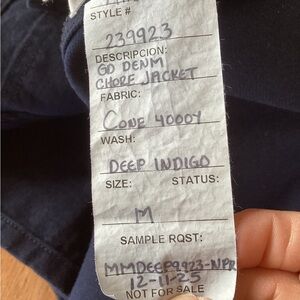 STYLE #
239923
DESCRIPCION:
GD DENM
CHORE JACKET
FABRIC:
CONE 4000Y
WASH:
DEEP INDIGO
SIZE: STATUS:
M
SAMPLE RQST:
MMDEEP9923-NPR
12-11-25
NOT FOR SALE